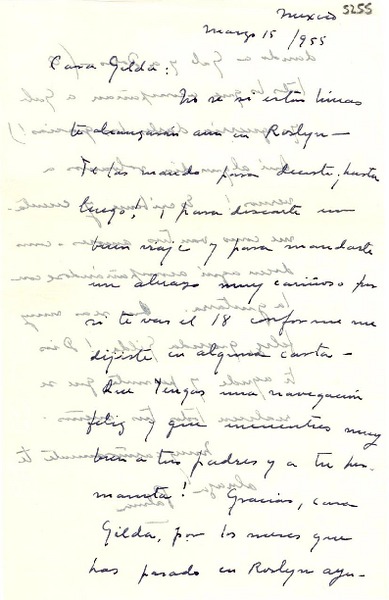 5255
Mexico
Marzo 15 / 955
Cara Gilda:
No se si estas lineas
te alcanzaran aun en Roslyn—
Te las mando para decirte ¡hasta
luego! y para desearte un
buen viaje y para mandarte
un abrazo muy cariñoso por
si te vas el 18 conforme me
dijiste en alguna carta—
Que tengas una navegación
feliz y que encuentres muy
bien a tus padres y a tu her-
manita! Gracias, cara
Gilda, por los meses que
has pasado en Roslyn ayu-